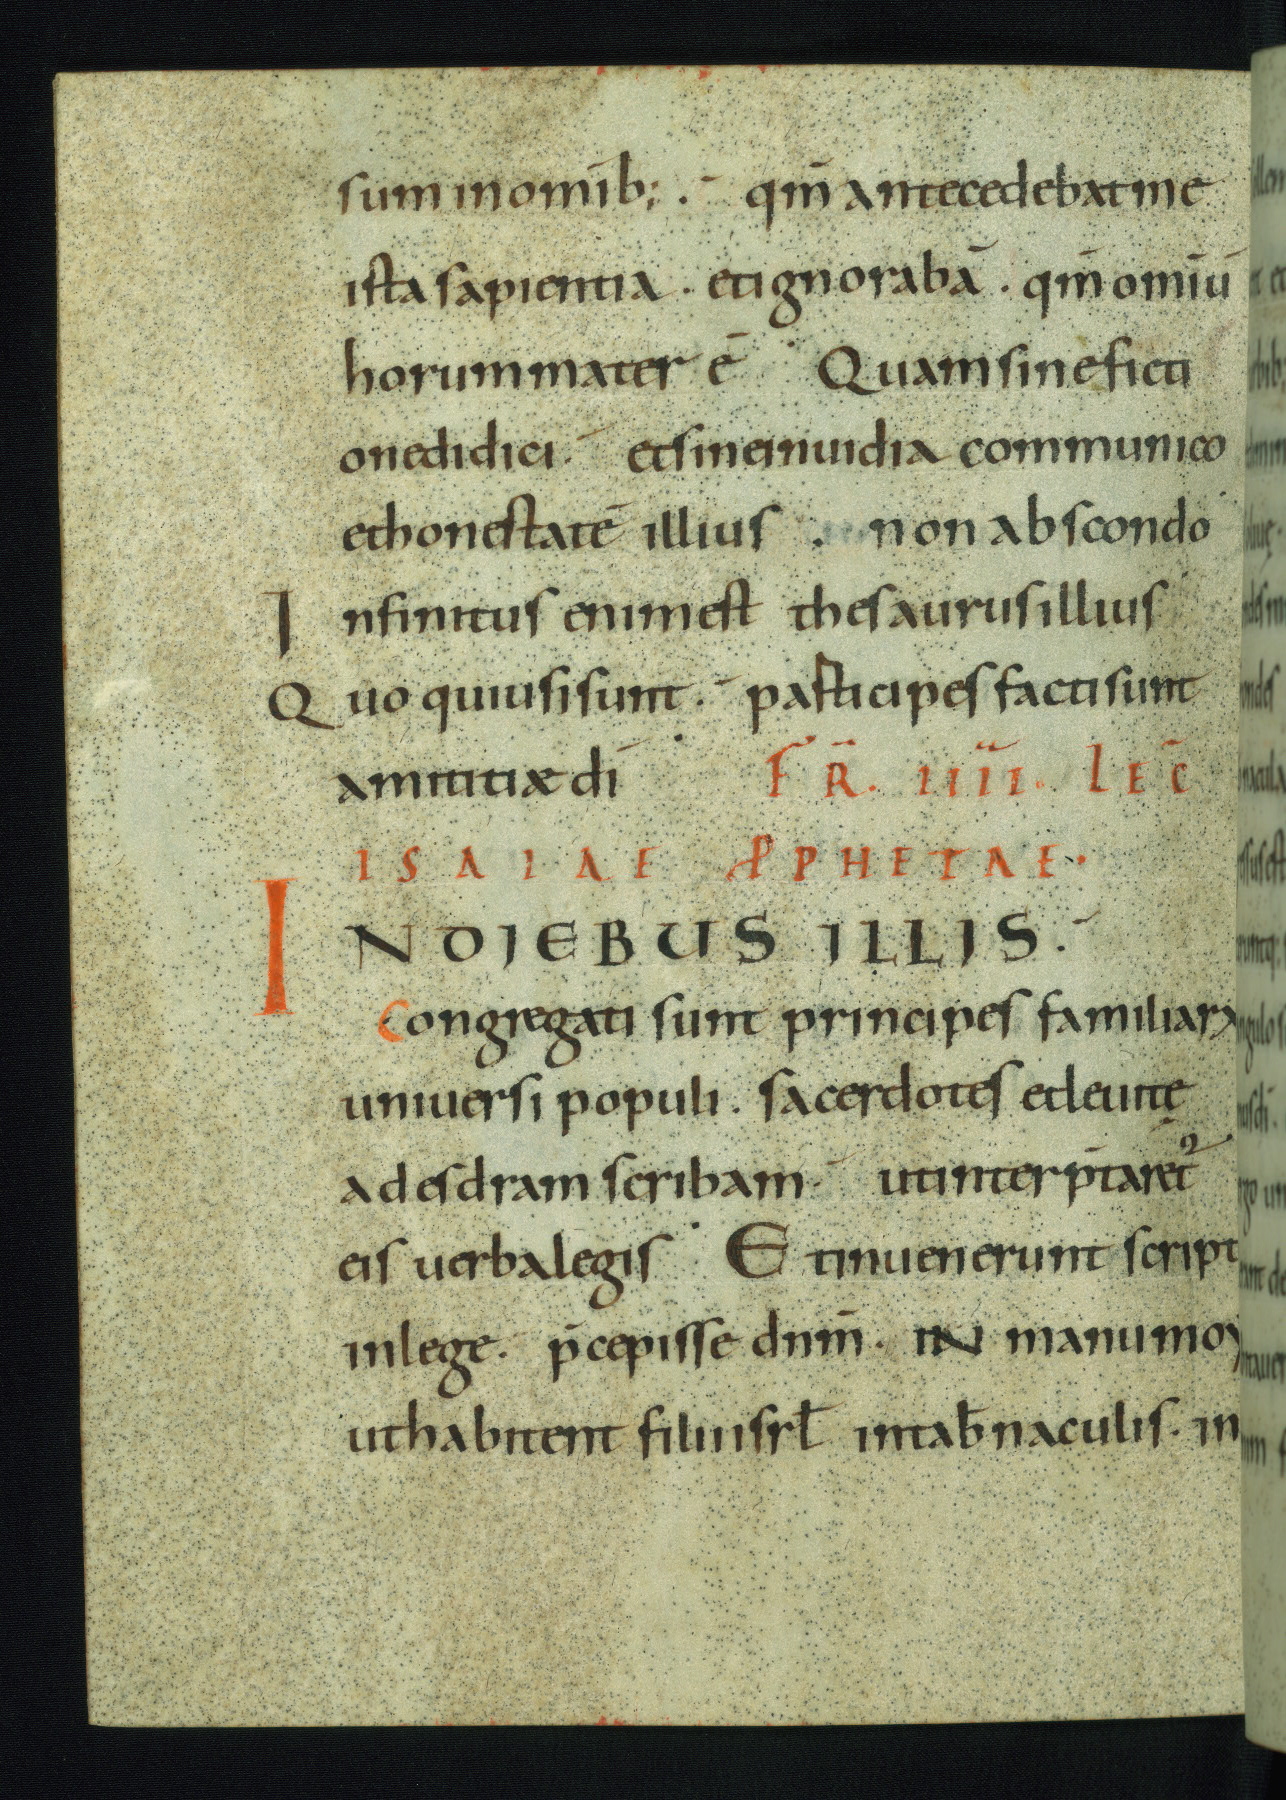 sum inomīb; . qm̄ antecedebatme
istasapientia . etignorabā . qm̄ omīū
horummater ē Quamsineficti
onedidici . etsineinuidia communico
ethonestatē illius . non abscondo
Infinitus enimest thesaurusillius
Quo quiusisunt . pasticipes factisunt
amititiæ di̅
FR̄. IIII. LEC̄
ISAIAE PPHETAE.
INDIEBUS ILLIS.
Congregati sunt principes familiarꝝ
uniuersi populi . sacerdotes etleuitę
adesdram scribam . utinterp̄tareť
eis uerbalegis Etinuenerunt script
inlege . p̄cepisse dnm̄ . IN manumoy
uthabitent filiiisrł intab̄naculis . in